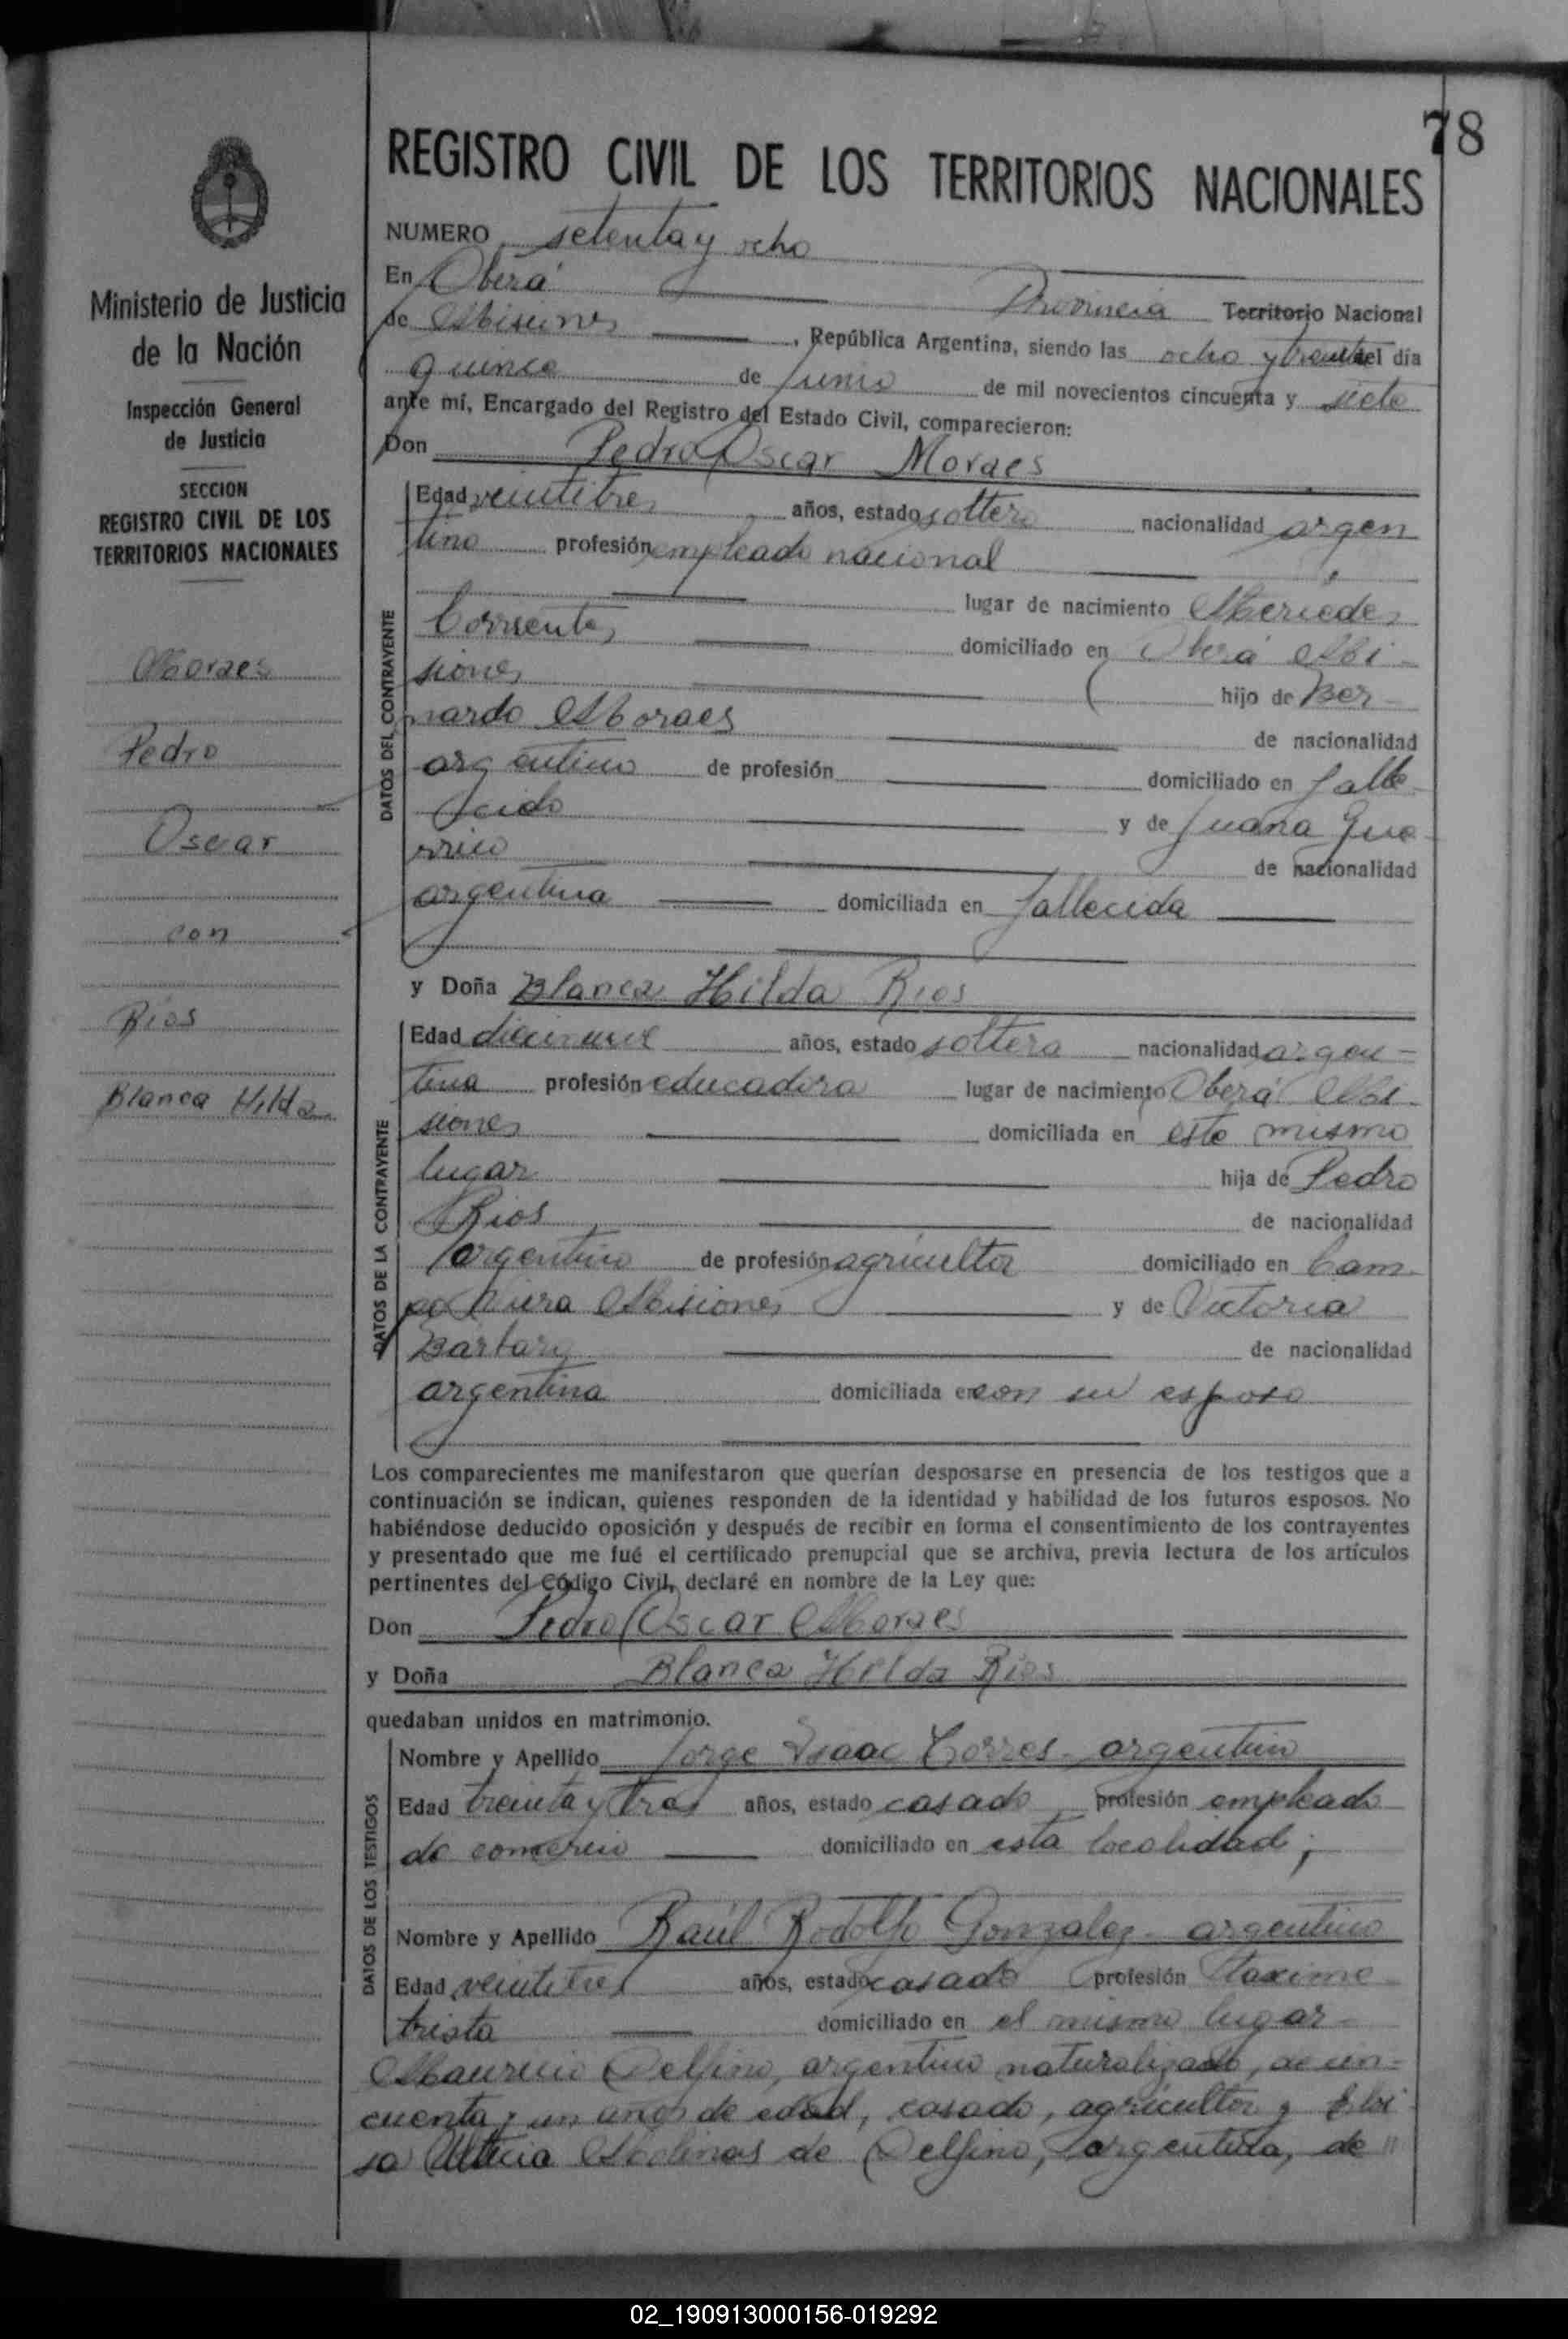 78
REGISTRO CIVIL DE LOS TERRITORIOS NACIONALES
Ministerio de Justicia
de la Nación
Inspección General
de Justicia
SECCION
REGISTRO CIVIL DE LOS
TERRITORIOS NACIONALES
Moraes
Pedro
Oscar
con
Rios
Blanca Hilda
NUMERO setenta y ocho
En Oberá Provincia Territorio Nacional
de Misiones, República Argentina, siendo las ocho y treinta del día
quince de Junio de mil novecientos cincuenta y siete
ante mí, Encargado del Registro del Estado Civil, comparecieron:
Don Pedro Oscar Moraes
DATOS DEL CONTRAYENTE
Edad veintitres años, estado soltero nacionalidad argen
tino profesión empleado nacional
lugar de nacimiento Mercedes
Corrientes domiciliado en Oberá Mi-
siones hijo de Ber-
nardo Moraes de nacionalidad
argentino de profesión domiciliado en falle-
cido y de Juana Gue-
rrico de nacionalidad
argentina domiciliada en fallecida
y Doña Blanca Hilda Rios
DATOS DE LA CONTRAYENTE
Edad diecinueve años, estado soltera nacionalidad argen-
tina profesión educadora lugar de nacimiento Oberá Mi-
siones domiciliada en este mismo
lugar hija de Pedro
Rios de nacionalidad
argentino de profesión agricultor domiciliado en Cam-
po Viera Misiones y de Victoria
de nacionalidad
argentina domiciliada en con su esposo
Los comparecientes me manifestaron que querían desposarse en presencia de los testigos que a
continuación se indican, quienes responden de la identidad y habilidad de los futuros esposos. No
habiéndose deducido oposición y después de recibir en forma el consentimiento de los contrayentes
y presentado que me fué el certificado prenupcial que se archiva, previa lectura de los artículos
pertinentes del Código Civil, declaré en nombre de la Ley que:
Don Pedro Oscar Moraes
y Doña Blanca Hilda Rios
quedaban unidos en matrimonio.
DATOS DE LOS TESTIGOS
Nombre y Apellido Jorge Isaac Torres - argentino
Edad treinta y tres años, estado casado profesión empleado
de comercio domiciliado en esta localidad;
Nombre y Apellido Raúl Rodolfo Gonzalez - argentino
Edad veintitres años, estado casado profesión taxime-
trista domiciliado en el mismo lugar-
Mauricio Delfino, argentino naturalizado, de cin-
cuenta y un años de edad, casado, agricultor y Eloi
sa Molinas de Delfino, argentina, de "
02_190913000156-019292